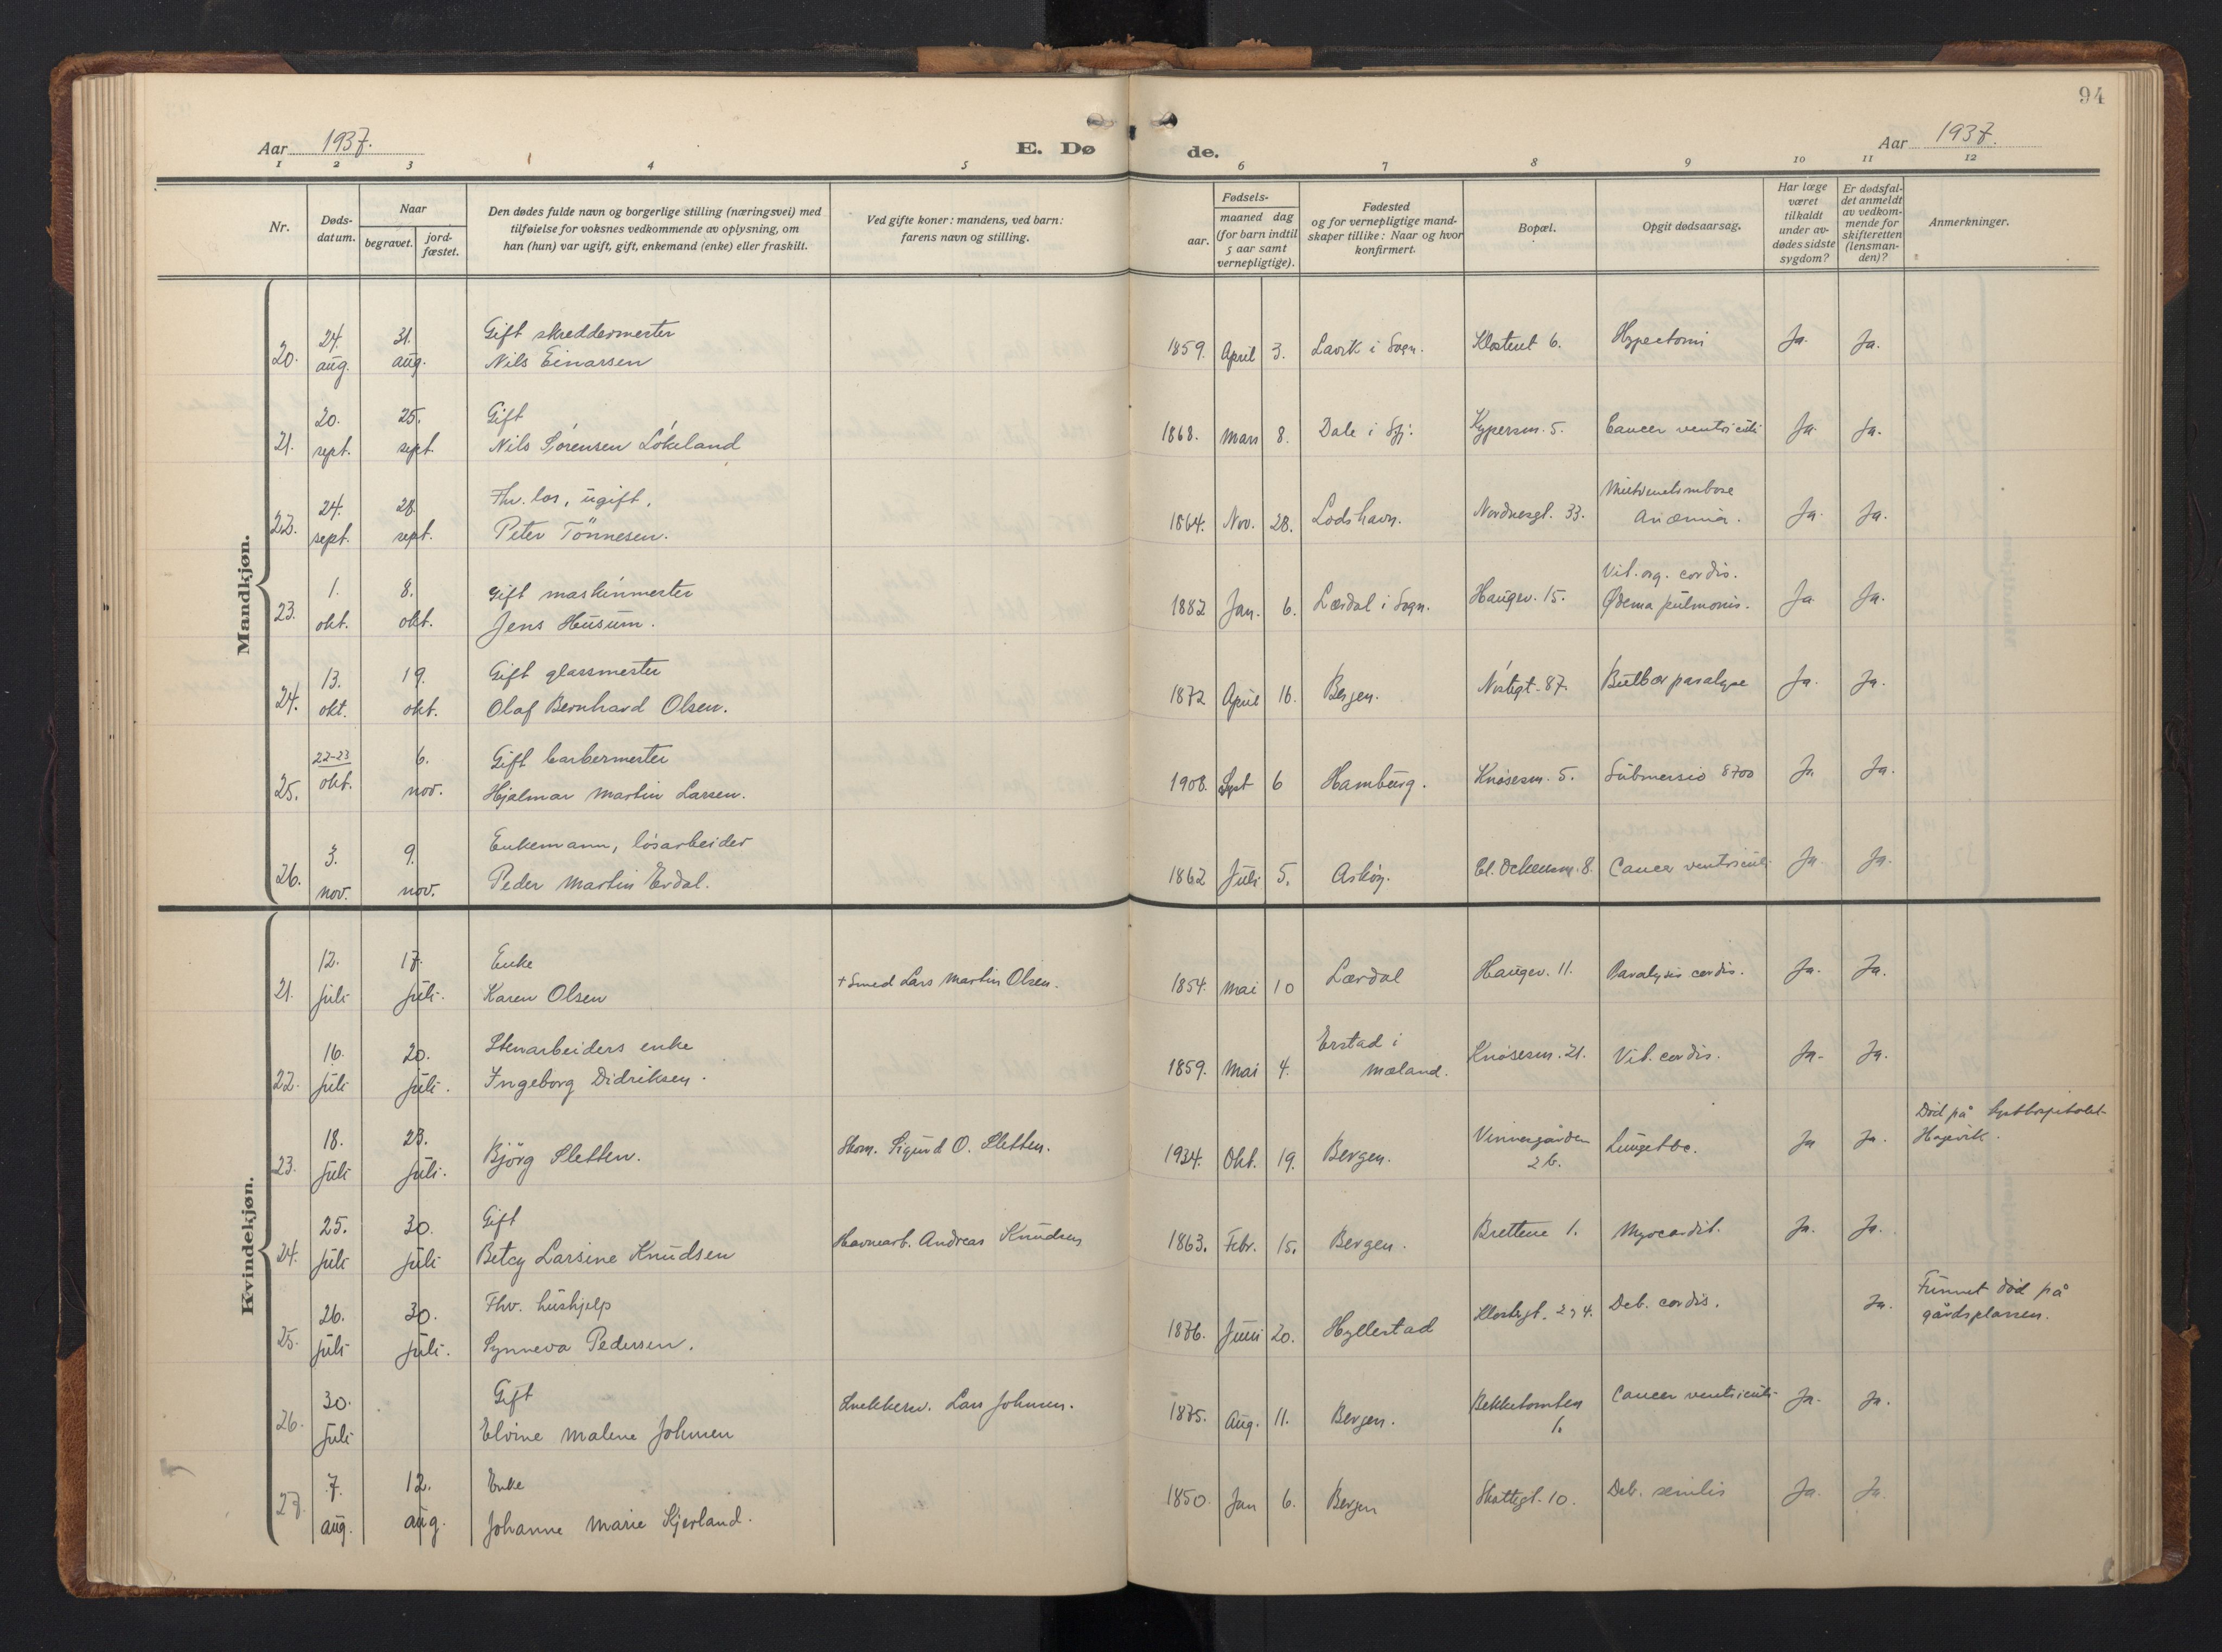 94
Aar 1937.
E. Døde.
Aar 1937.
1 2 3 4 5 6 7 8 9 10 11 12
Nr.
Døds-
datum.
Naar
begravet.
jord-
fæstet.
Den dødes fulde navn og borgerlige stilling (næringsvei) med
tilføielse for voksnes vedkommende av oplysning, om
han (hun) var ugift, gift, enkemand (enke) eller fraskilt.
Ved gifte koner: mandens, ved barn:
farens navn og stilling.
Fødsels-
aar.
maaned dag
(for barn indtil
5 aar samt
vernepligtige).
Fødested
og for vernepligtige mand-
skaper tillike: Naar og hvor
konfirmert.
Bopæl.
Opgit dødsaarsag.
Har læge
været
tilkaldt
under av-
dødes sidste
sygdom?
Er dødsfal-
det anmeldt
av vedkom-
mende for
skifteretten
(lensman-
den)?
Anmerkninger.
Mandkjøn.
20. 24. aug. 31. aug. Gift skreddermester
Nils Einarsen
1859. April 3. Lavik i Sogn. Klostert 6. Ja. Ja.
21. 20. sept. 25. sept. Gift
Nils Sørensen Løkeland
1868. Mars 8. Dale i Sfj. Kypersm. 5. Cancer ventriculi Ja. Ja.
22. 24. sept. 28. sept. Fhv. los, ugift,
Peter Tönnesen.
1864. Nov. 28. Lodshavn. Nordnesgt. 33. Anæmia. Ja. Ja.
23. 1. okt. 8. okt. Gift maskinmester
Jens Husum.
1882 Jan. 6. Lærdal i Sogn. Haugev. 15. Vit. org. cordis.
Ødema pulmonis. Ja. Ja.
24. 13. okt. 19. okt. Gift glassmester
Olaf Bernhard Olsen.
1872 April 16. Bergen. Nøstegt. 87. Bulbærparalyse Ja. Ja.
25. 22-23 okt. 6. nov. Gift barbermester
Hjalmar Martin Larsen.
1908. Sept 6 Hamburg. Knøsesm. 5. Submersio 8700 Ja Ja.
26. 3. nov. 9. nov. Enkemann, løsarbeider
Peder Martin Erdal.
1862 Juli 5. Askøy. Cancer ventriculi Ja. Ja.
Kvindekjøn.
21. 12. juli 17. juli. Enke
Karen Olsen
+ Smed Lars Martin Olsen.
1854. Mai 10 Lærdal Haugev. 11. Paralysis cordis. Ja. Ja.
22. 16. juli 20. juli. Stenarbeiders enke
Ingeborg Didriksen.
1859. Mai 4. Erstad i
Mæland. Knøsesm. 21. Vit. cordis. Ja. Ja.
23. 18. juli 23. juli. Björg Sletten.
Skom. Sigurd O. Sletten.
1934. Okt. 19. Bergen. Vinnergården
26. Lungetbc. Ja Ja. Død på Kysthospitalet
Hagevik.
24. 25. juli 30. juli Gift
Betcy Larsine Knudsen
Havnearb. Andreas Knudsen
1863. Febr. 15. Bergen. Brettene 1. Myocardit. Ja. Ja.
25. 26. juli 30. juli. Fhv. hushjelp
Synneva Pedersen.
1876. Juni 20. Hyllestad Deb. cordis. Ja. Funnet død på
gårdsplassen.
26. 30. juli Gift
Elvine Malene Johnsen
Snekkerw. Lars Johnsen.
1875. Aug. 11. Bergen. Bekketomten
1. Cancer ventriculi Ja. Ja.
27. 7. aug. 12. aug. Enke
Johanne Marie Kjerland.
1850. Jan 6. Bergen Skottegt. 10. Deb. senilis Ja. Ja.